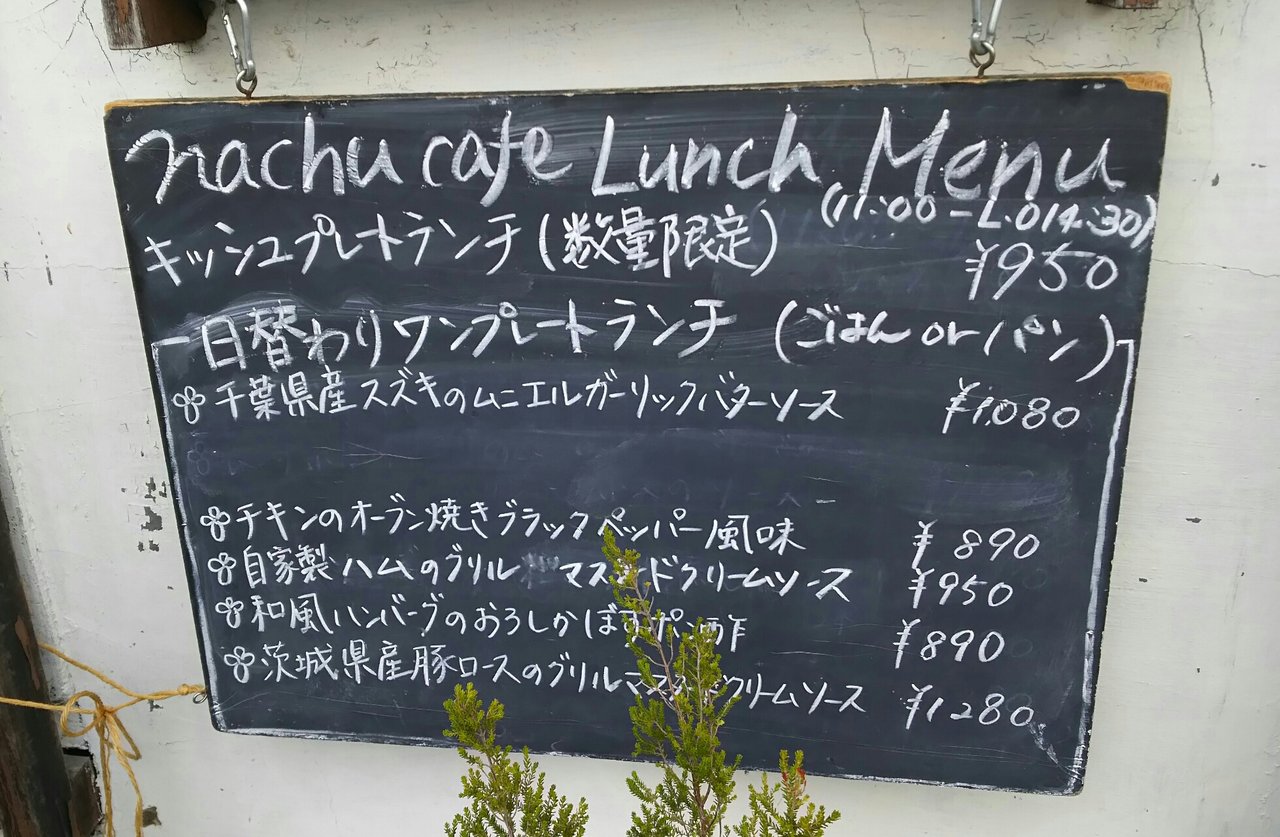 nachu cafe Lunch Menu
(11:00-L.O14:30)
キッシュプレートランチ(数量限定) ¥950
日替わりワンプレートランチ (ごはん or パン)
千葉県産スズキのムニエルガーリックバターソース ¥1,080
チキンのオーブン焼きブラックペッパー風味 ¥890
自家製ハムのグリル マスタードクリームソース ¥950
和風ハンバーグのおろしかぼすポン酢 ¥890
茨城県産豚ロースのグリルマスタードクリームソース ¥1280